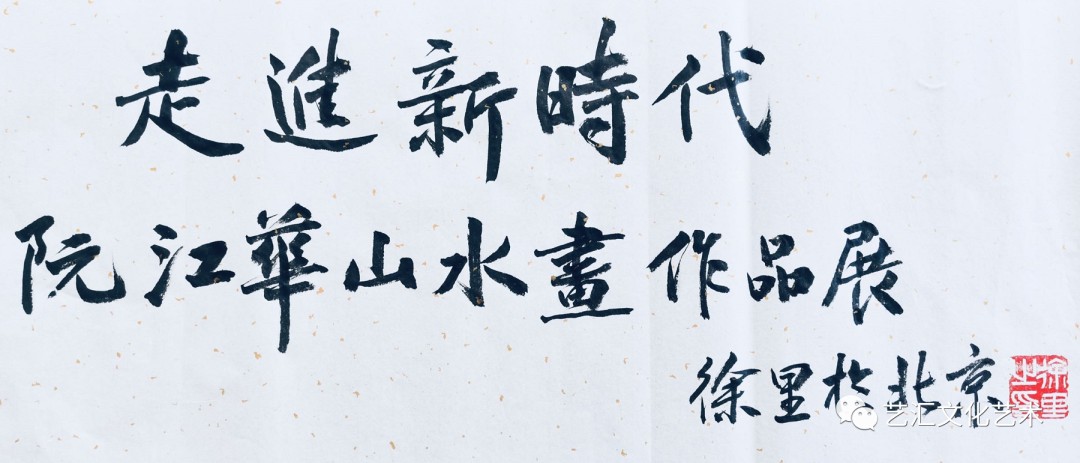 走進新時代
阮江華山水畫作品展
徐里於北京
徐里之印
艺汇文化艺术